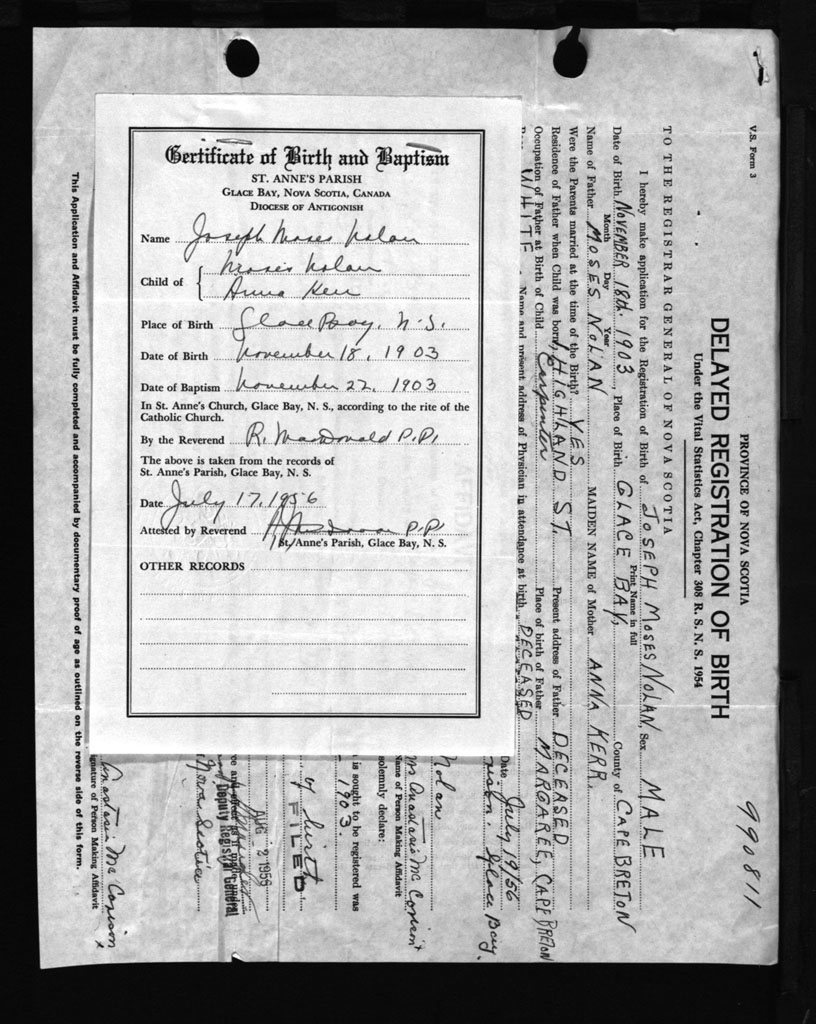 Certificate of Birth and Baptism
ST. ANNE'S PARISH
GLACE BAY, NOVA SCOTIA, CANADA
DIOCESE OF ANTIGONISH
Name Joseph Moses Nolan
Child of Moses Nolan
Anna Kerr
Place of Birth Glace Bay, N.S.
Date of Birth November 18, 1903
Date of Baptism November 22, 1903
In St. Anne's Church, Glace Bay, N. S., according to the rite of the
Catholic Church.
By the Reverend R. MacDonald P.P.
The above is taken from the records of
St. Anne's Parish, Glace Bay, N. S.
Date July 17, 1956
Attested by Reverend P.P.
St. Anne's Parish, Glace Bay, N. S.
OTHER RECORDS
V.S. Form 3
990811
PROVINCE OF NOVA SCOTIA
DELAYED REGISTRATION OF BIRTH
Under the Vital Statistics Act, Chapter 308 R. S. N. S. 1954
TO THE REGISTRAR GENERAL OF NOVA SCOTIA
I hereby make application for the Registration of Birth of JOSEPH MOSES NOLAN, Sex MALE
Print Name in full
Date of Birth NOVEMBER 18th. 1903, Place of Birth GLACE BAY, County of CAPE BRETON
Month Day Year
Name of Father MOSES NOLAN MAIDEN NAME of Mother ANNA KERR.
Were the Parents married at the time of the Birth? YES
Residence of Father when Child was born, HIGHLAND ST. Present address of Father DECEASED
Occupation of Father at Birth of Child Carpenter Place of birth of Father MARGAREE, CAPE BRETON
WHITE Name and present address of Physician in attendance at birth DECEASED
Date July 19/56
Glace Bay.
Nolan
Anastasia McCorison
Name of Person Making Affidavit
solemnly declare:
is sought to be registered was
1903.
of birth
FILED
AUG 2 1956
Deputy Registrar General
Nova Scotia
Anastasia McCorison x
Signature of Person Making Affidavit
This Application and Affidavit must be fully completed and accompanied by documentary proof of age as outlined on the reverse side of this form.